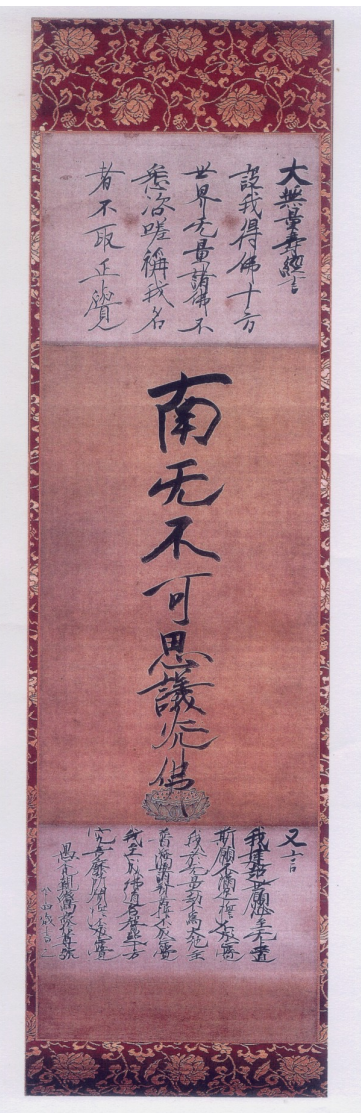 大無量壽經言
設我得佛十方
世界无量諸佛不
悉咨嗟稱我名
者不取正覺
南无不可思議光佛
又言
我建超世願必至无上道
斯願不滿足誓不成等覺
我於无量劫不爲大施主
普濟諸貧苦誓不成等覺
我至成佛道名聲超十方
究竟靡所聞誓不成等覺
愚禿親鸞敬信尊號